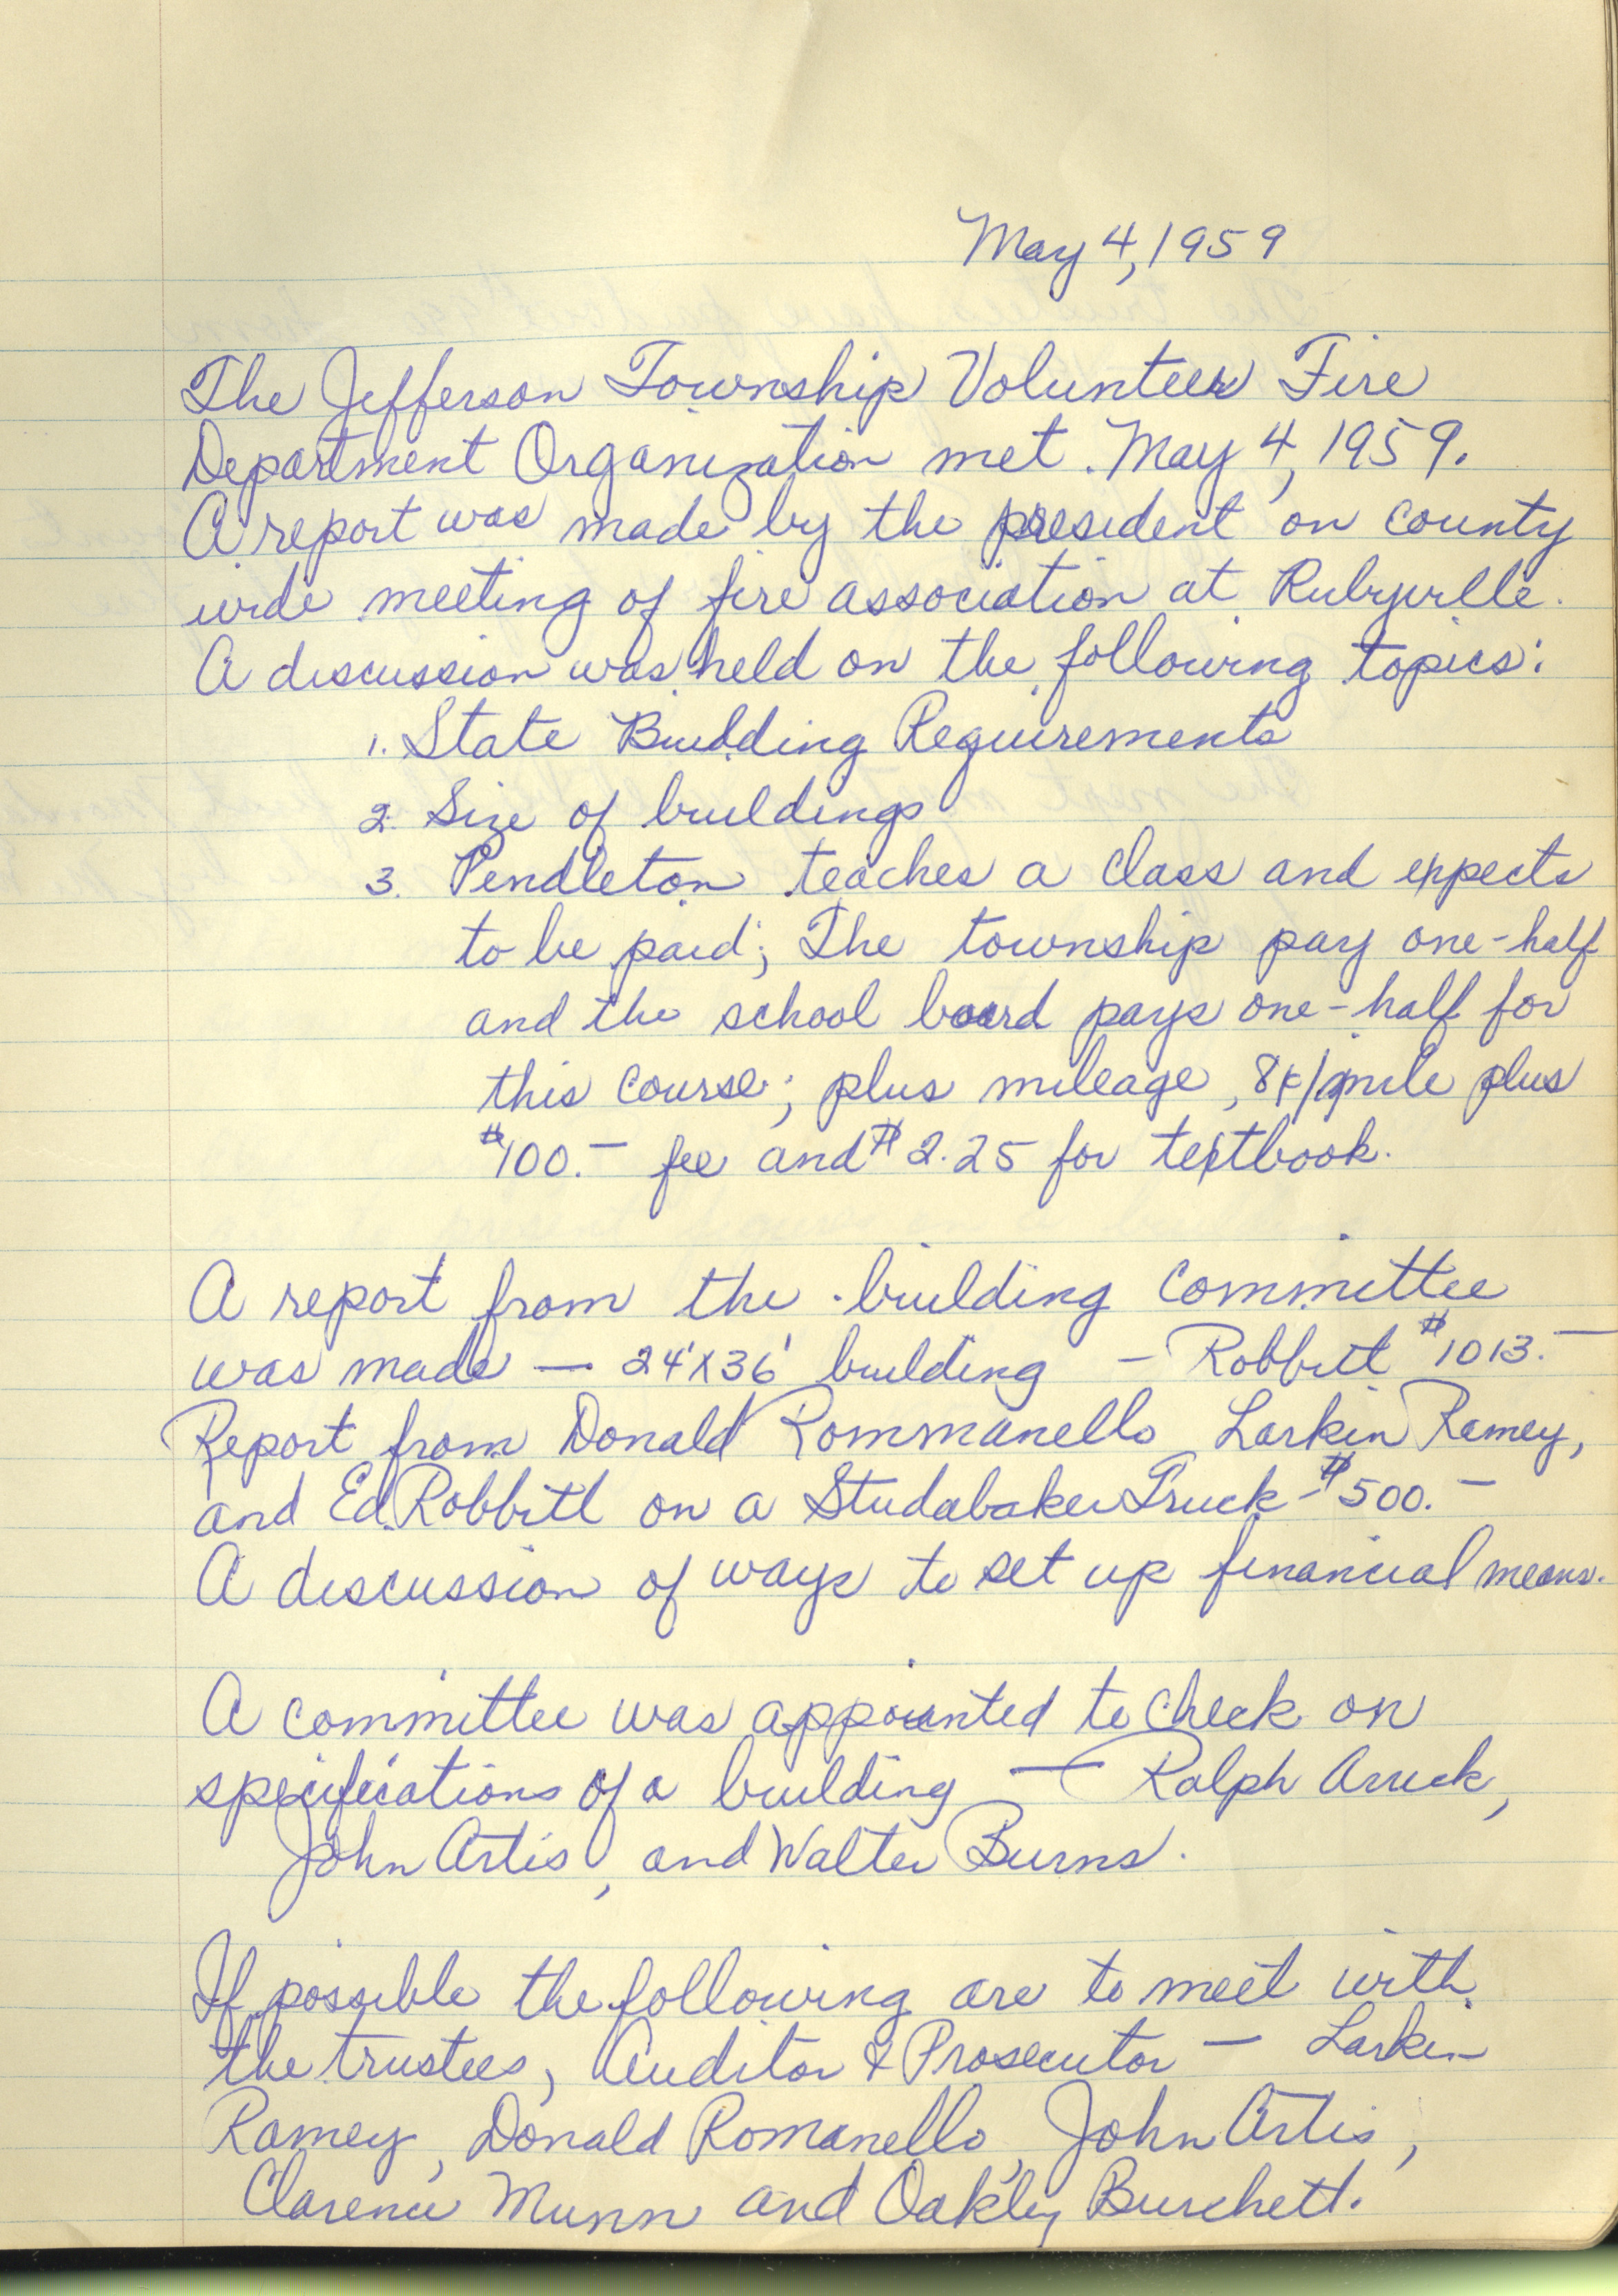 May 4, 1959
The Jefferson Township Volunteer Fire
Department Organization met. May 4, 1959.
A report was made by the president on county
wide meeting of fire association at Rubyville.
A discussion was held on the following topics:
1. State Building Requirements
2. Size of buildings
3. Pendleton teaches a class and expects
to be paid; The township pay one-half
and the school board pays one-half for
this course; plus mileage, 8¢/mile plus
$100.— fee and $2.25 for textbook.
A report from the building committee
was made — 24'X36' building — Robbitt $1013.—
Report from Donald Rommanello Larkin Ramey,
and Ed Robbitt on a Studabaker Truck - $500.—
A discussion of ways to set up financial means.
A committee was appointed to check on
specifications of a building — Ralph Arrick,
John Artis, and Walter Burns.
If possible the following are to meet with
the trustees, Auditor & Prosecutor — Larkin
Ramey, Donald Romanello, John Artis,
Clarence Munn and Oakley Burchett.